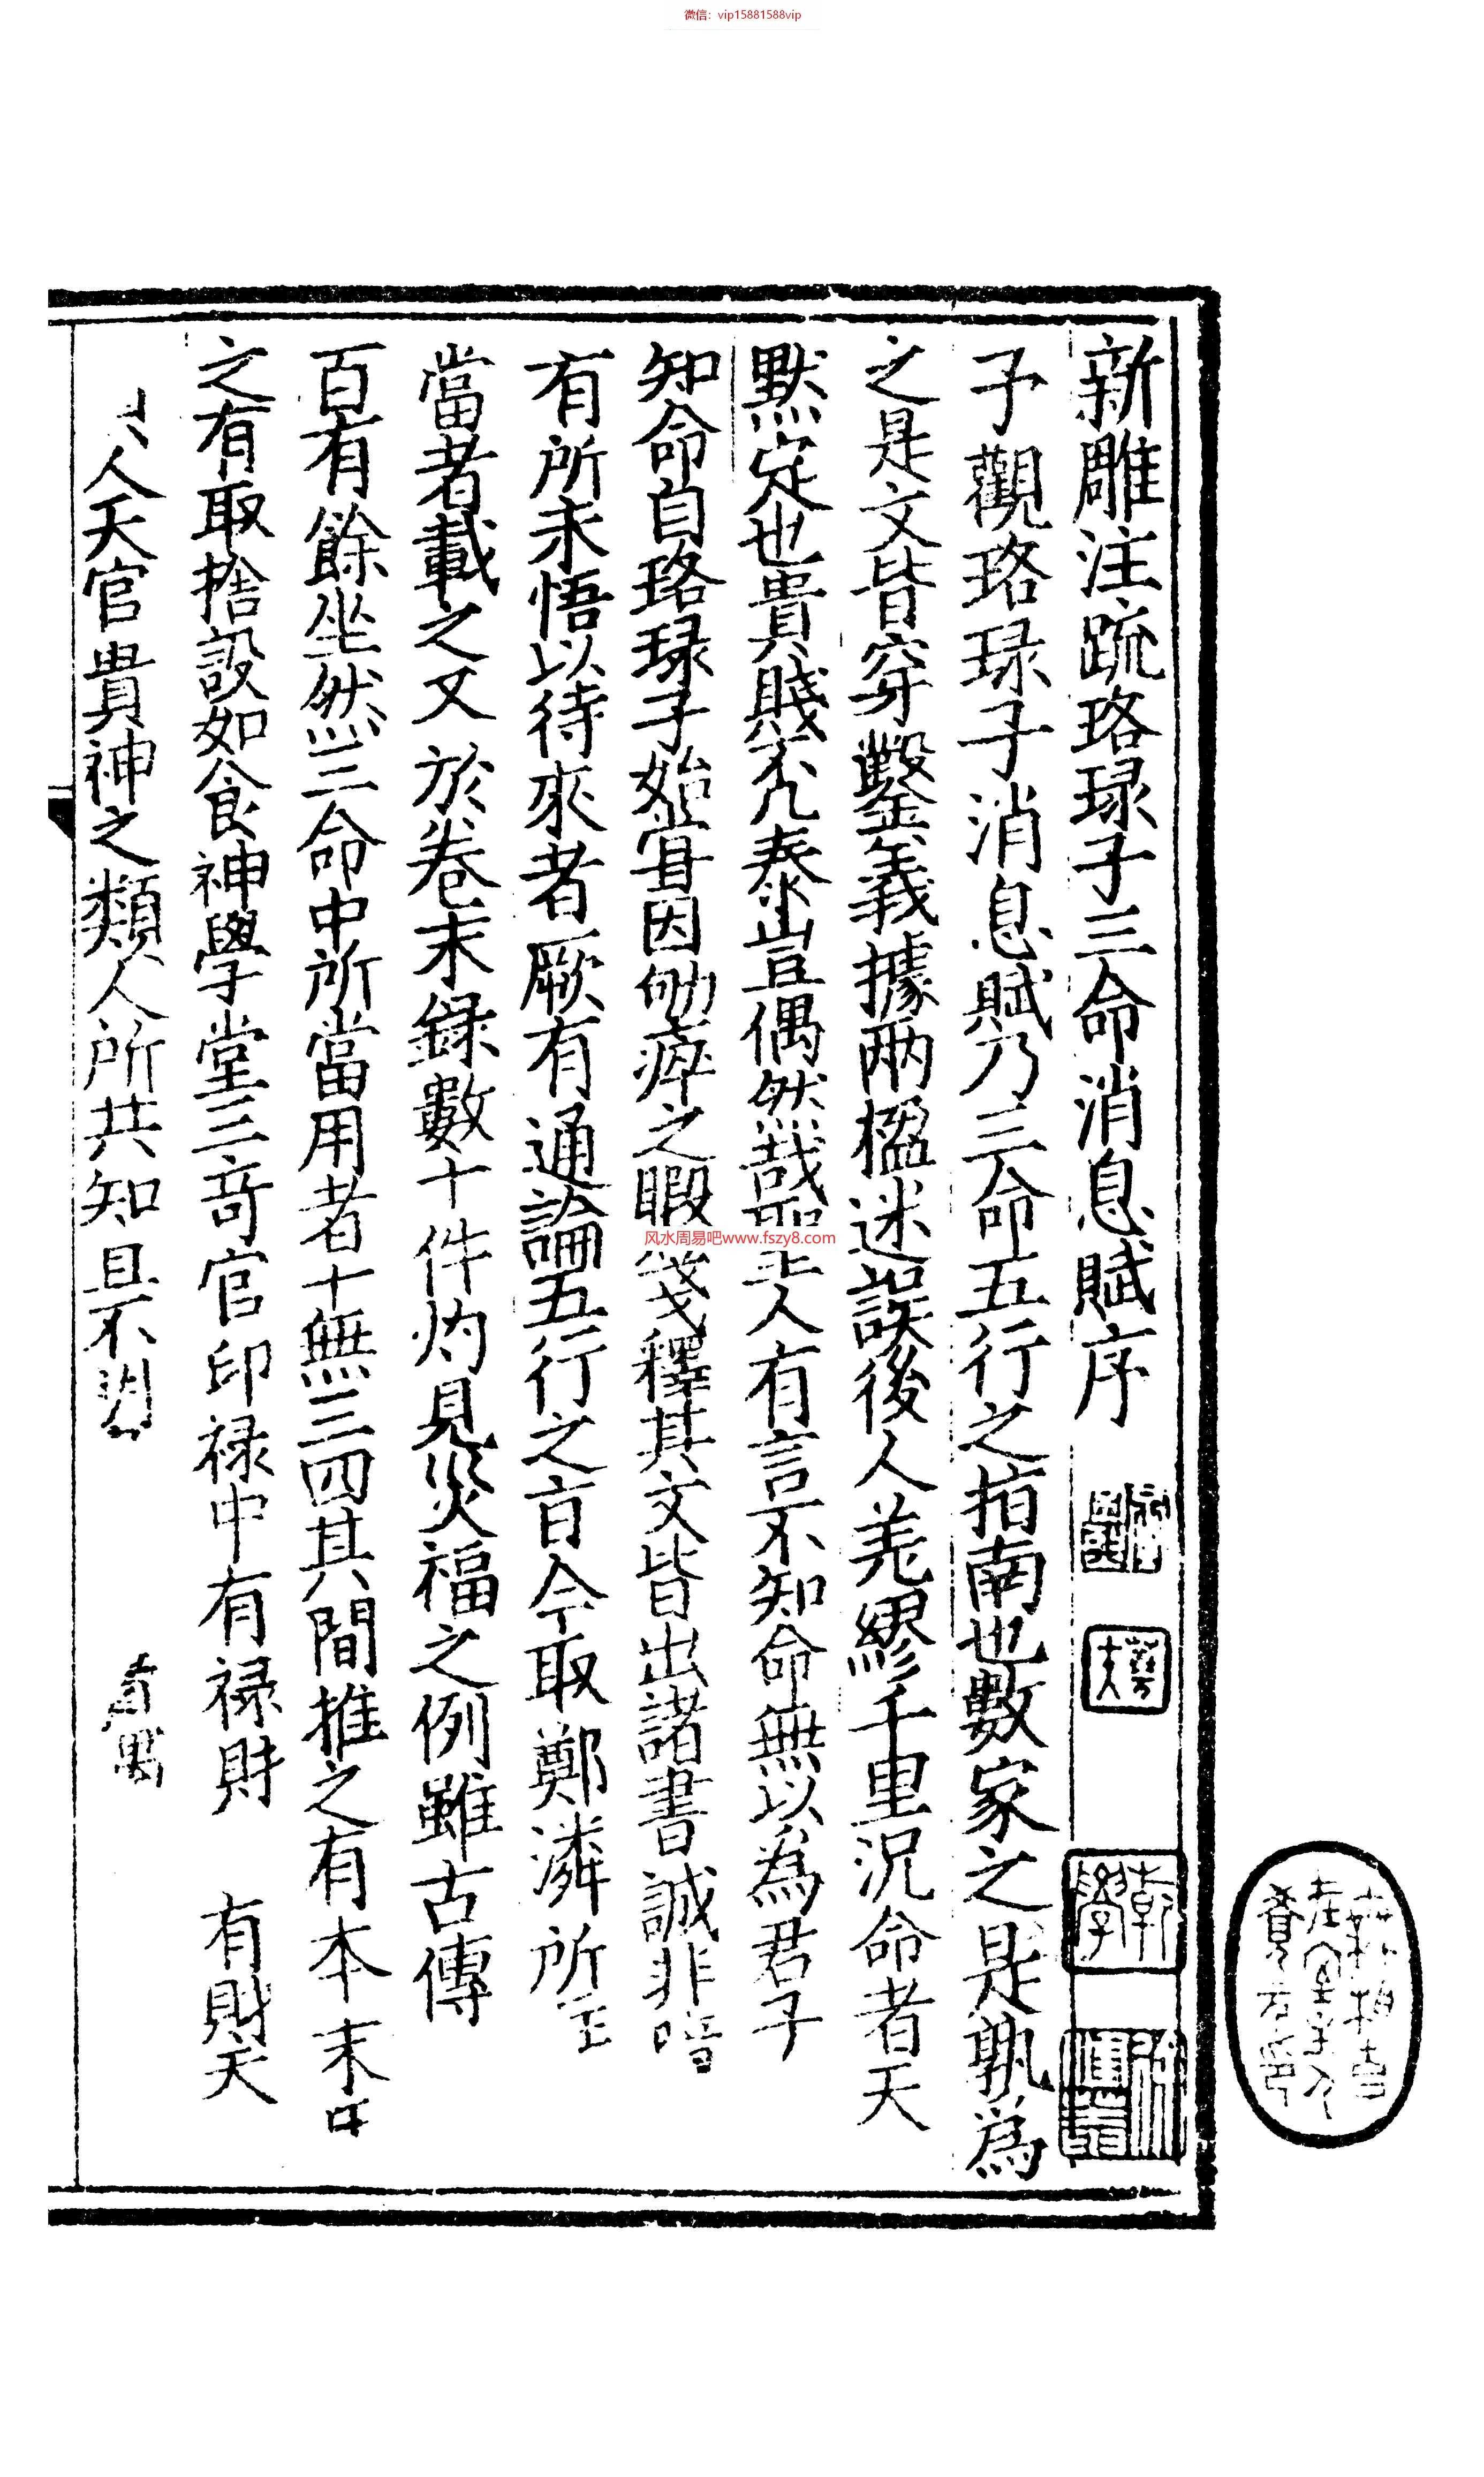 微信：vip15881588vip
新雕注疏珞琭子三命消息賦序
予觀珞琭子消息賦乃三命五行之指南也數家之是孰為
之是文皆穿鑿義據兩楹迷誤後人差繆千里況命者天
默定也貴賤不凢泰豈偶然哉聖人有言不知命無以為君子
知命自珞琭子始冝因 瘁之暇箋釋其文皆出諸書誠非
有所未悟以待來者厥有通論五行之㫖今取鄭潾所
當者載之又於卷末錄數十件灼見災福之例雖古傳
百有餘坐然三命中所當用者十無三四其間推之有本末
之有取捨設如食神學堂三竒官印禄中有禄財 有財天
人天官貴神之類人所共知
风水周易吧www.fszy8.com